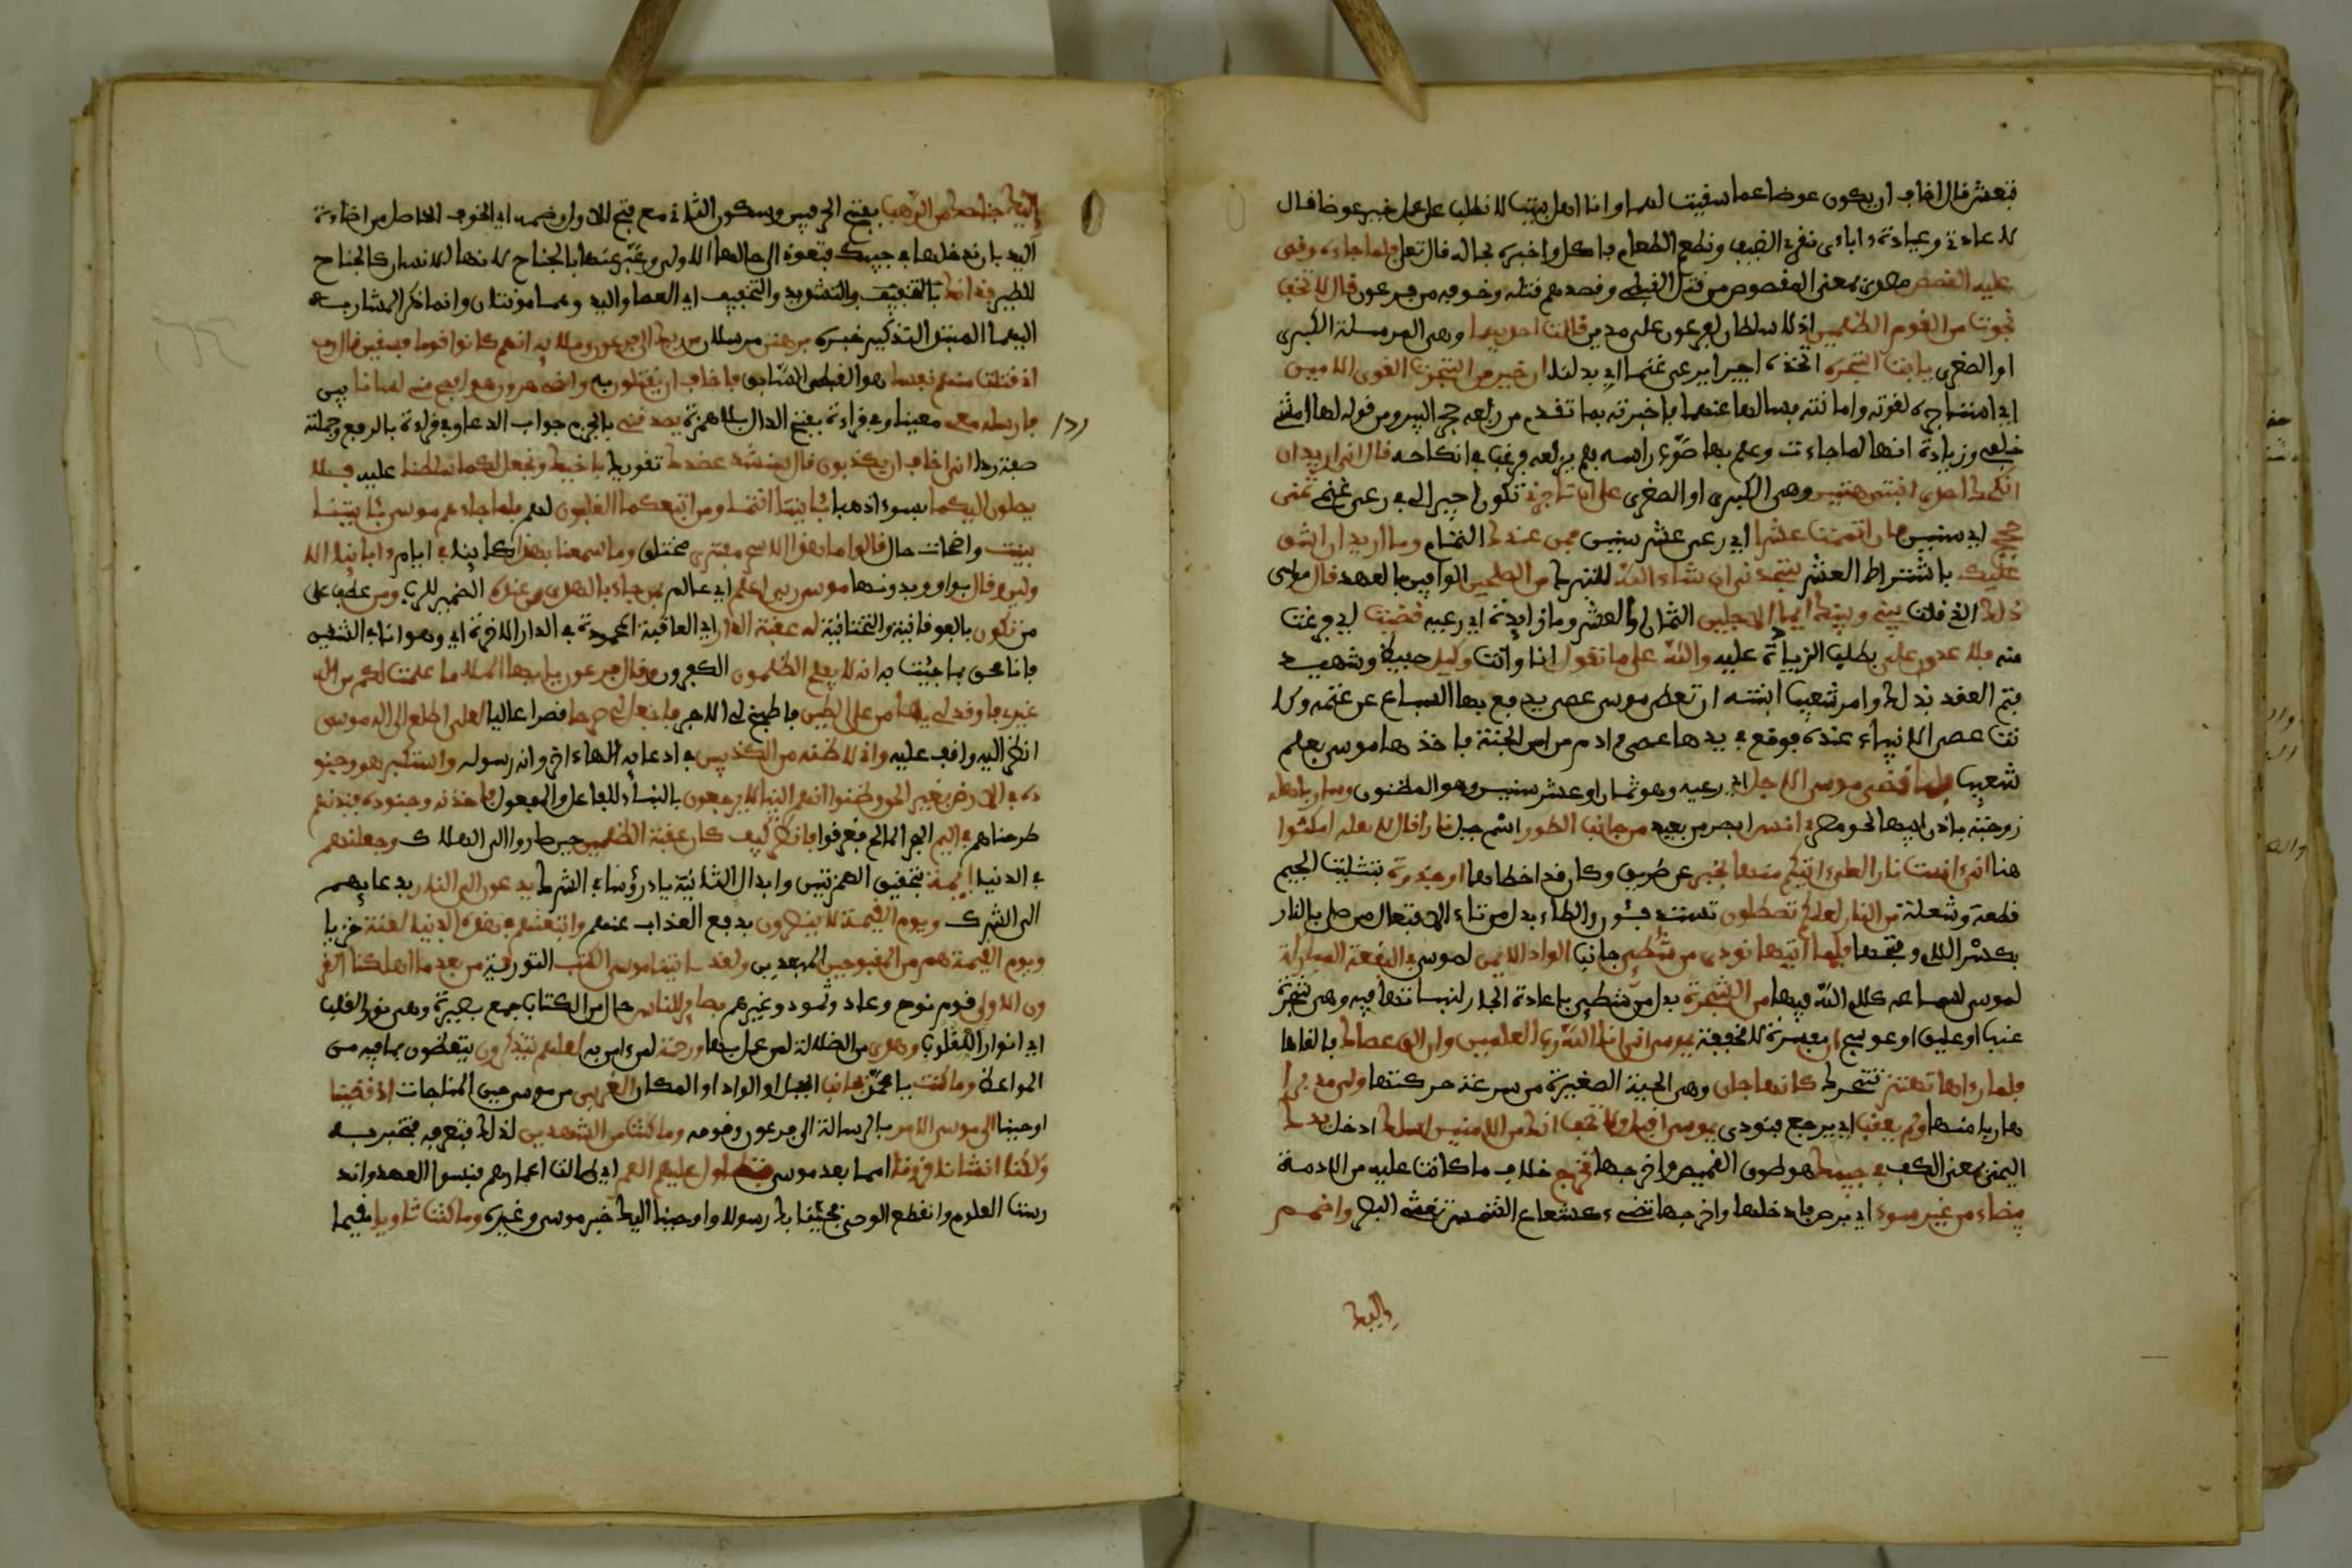 فتعش قال اخاف ان يكون عوضا عما سقيت لهما وانا اهل بيت لا نطلب على عمل خير عوضا فقال
لا عادتي وعادة ءاباءي نقري الضيف ونطعم الطعام فاكل واخبره بحاله قال تعلى فلما جاءه وقص
عليه القصص مصدر بمعنى المقصوص من قتل القبطي وقصدهم قتله وخوفه من فرعون قال لا تخف
نجوت من القوم الظلمين اذ لا سلطان لفرعون على مدين قالت احديهما وهي المرسلة الكبرى
او الصغرى يابت استجره اتخذه اجيرا يرعى غنمنا اي بدلنا ان خير من استجرت القوي الامين
اي استاجره لقوته وامانته فسالها عنهما فاخبرته بما تقدم من رفعه حجر البير ومن قوله لها امشي
خلفي وزيادة انها لما جاءت وعلم بها صوب راسه فلم يرفعه فرغب في انكاحه قال اني اريد ان
انكحك احدى ابنتي هتين وهي الكبرى او الصغرى على ان تاجرني تكون اجيرا لي في رعي غنمي ثمني
حجج اي سنين فان اتممت عشرا اي رعي عشر سنين فمن عندك التمام وما اريد ان اشق
عليك باشتراط العشر ستجدني ان شاء الله للتبرك من الصلحين الوافين بالعهد قال موسى
ذلك الذي قلت بيني وبينك ايما الاجلين الثمان او العشر وما زايدة اي رعيه قضيت اي فرغت
منه فلا عدون علي بطلب الزيادة عليه والله على ما نقول انا وانت وكيل حفيظ وشهيد
فتم العقد بذلك وامر شعيب ابنته ان تعطي موسى عصى يدفع بها السباع عن غنمه وكا
نت عصي الانبياء عنده فوقع في يدها عصى ءادم من ءاس الجنة فاخذها موسى بعلم
شعيب فلما قضى موسى الاجل اي رعيه وهو ثمان او عشر سنين وهو المظنون وسار باهله
زوجته باذن ابيها نحو مصر ءانس ابصر من بعيد من جانب الطور اسم جبل نارا قال لاهله امكثوا
هنا اني ءانست نارا لعلي ءاتيكم منها بخبر عن طريق وكان قد اخطاها او جذوة بتثليث الجيم
قطعة وشعلة من النار لعلكم تصطلون تستدفئون والطاء بدل من تاء الافتعال من صلي بالنار
بكسر اللام وفتحها فلما اتيها نودي من شطئ جانب الواد الايمن لموسى في البقعة المباركة
لموسى لسماعه كلام الله فيها من الشجرة بدل من شطئ باعادة الجار لنباتها فيه وهي شجرة
عناب او عليق او عوسج ان مفسرة لا مخففة يموسى اني انا الله رب العلمين وان الق عصاك فالقاها
فلما رءاها تهتز تتحرك كانها جان وهي الحية الصغيرة من سرعة حركتها ولى مدبرا
هاربا منها ولم يعقب اي يرجع فنودي يموسى اقبل ولا تخف انك من الامنين اسلك ادخل يدك
اليمنى بمعنى الكف في جيبك هو طوق القميص واخرجها تخرج خلاف ما كانت عليه من الادمة
بيضاء من غير سوء اي برص فادخلها واخرجها تضيء كشعاع الشمس تغشي البصر واضمم
اليك
اليك جناحك من الرهب بفتح الحرفين وسكون الثاني مع فتح الاول وضمه اي الخوف الحاصل من اضاءة
اليد بان تدخلها في جيبك فتعود الى حالتها الاولى وعبر عنها بالجناح لانها للانسان كالجناح
للطير فذانك بالتشديد والتخفيف اي العصا واليد وهما مونثان وانما ذكر المشار به
اليهما المبتدا لتذكير خبره برهنن مرسلان من ربك الى فرعون وملايه انهم كانوا قوما فسقين قال رب
اني قتلت منهم نفسا هو القبطي السابق فاخاف ان يقتلون به واخي هرون هو افصح مني لسانا ابين
فارسله معي معينا وفي قراءة بفتح الدال بلا همزة يصدقني بالجزم جواب الدعاء وفي قراءة بالرفع وجملته
ردا
صفة ردا اني اخاف ان يكذبون قال سنشد عضدك نقويك باخيك ونجعل لكما سلطنا غلبة فلا
يصلون اليكما بسوء اذهبا بئايتنا انتما ومن اتبعكما الغلبون لهم فلما جاءهم موسى بئايتنا
بينت واضحات حال قالوا ما هذا الا سحر مفترى مختلق وما سمعنا بهذا كاينا في ايام ءاباينا الا
ولين وقال بواو وبدونها موسى ربي اعلم اي عالم بمن جاء بالهدى من عنده الضمير للرب ومن عطف على
من تكون بالفوقانية والتحتانية له عقبة الدار اي العاقبة المحمودة في الدار الاخرة اي وهو انا في الشقين
فانا محق بما جئت به انه لا يفلح الظلمون الكفرون وقال فرعون يايها الملا ما علمت لكم من اله
غيري فاوقد لي يهامن على الطين فاطبخ لي الاجر فاجعل لي صرحا قصرا عاليا لعلي اطلع الى اله موسى
انظر اليه واقف عليه واني لاظنه من الكذبين في ادعايه الها ءاخر وانه رسوله واستكبر هو وجنو
ده في الارض بغير الحق وظنوا انهم الينا لا يرجعون بالبناء للفاعل والمفعول فاخذنه وجنوده فنبذنهم
طرحناهم في اليم البحر المالح فغرقوا فانظر كيف كان عقبة الظلمين حين صاروا الى الهلاك وجعلنهم
في الدنيا ايمة بتحقيق الهمزتين وابدال الثانية ياء رؤساء في الشرك يدعون الى النار بدعايهم
الى الشرك ويوم القيمة لا ينصرون بدفع العذاب عنهم واتبعنهم في هذه الدنيا لعنة خزيا
ويوم القيمة هم من المقبوحين المبعدين ولقد ءاتينا موسى الكتب التورية من بعد ما اهلكنا القر
ون الاولى قوم نوح وعاد وثمود وغيرهم بصاير للناس حال من الكتاب جمع بصيرة وهي نور القلب
اي انوارا للقلوب وهدى من الضلالة لمن عمل به ورحمة لمن ءامن به لعلهم يتذكرون يتعظون بما فيه من
المواعظ وما كنت يا محمد بجانب الجبل او الواد او المكان الغربي من موسى حين المناجات اذ قضينا
اوحينا الى موسى الامر بالرسالة الى فرعون وقومه وما كنت من الشهدين لذلك فتعرفه فتخبر به
ولكنا انشانا قرونا امما بعد موسى فتطاول عليهم العمر اي طالت اعمارهم فنسوا العهد واند
رست العلوم وانقطع الوحي فجئنا بك رسولا واوحينا اليك خبر موسى وغيره وما كنت ثاويا مقيما